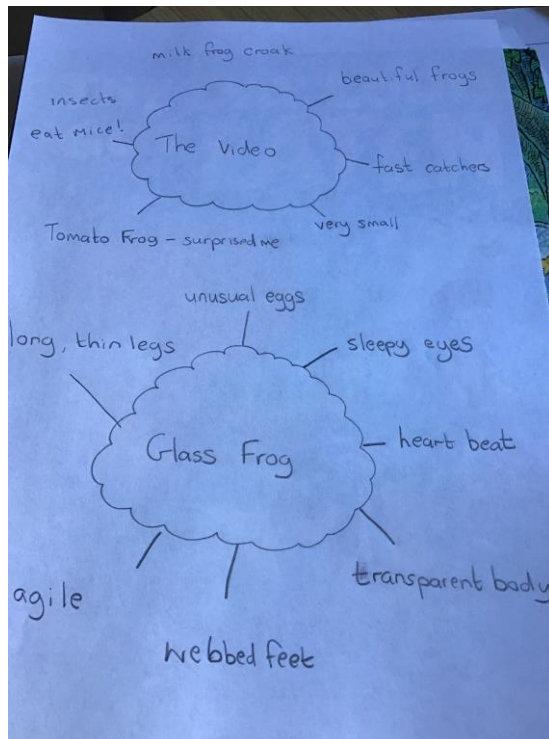 milk frog croak
beautiful frogs
insects
eat mice!
The Video
fast catchers
very small
Tomato Frog - surprised me
unusual eggs
long, thin legs
sleepy eyes
Glass Frog
heart beat
transparent body
agile
webbed feet